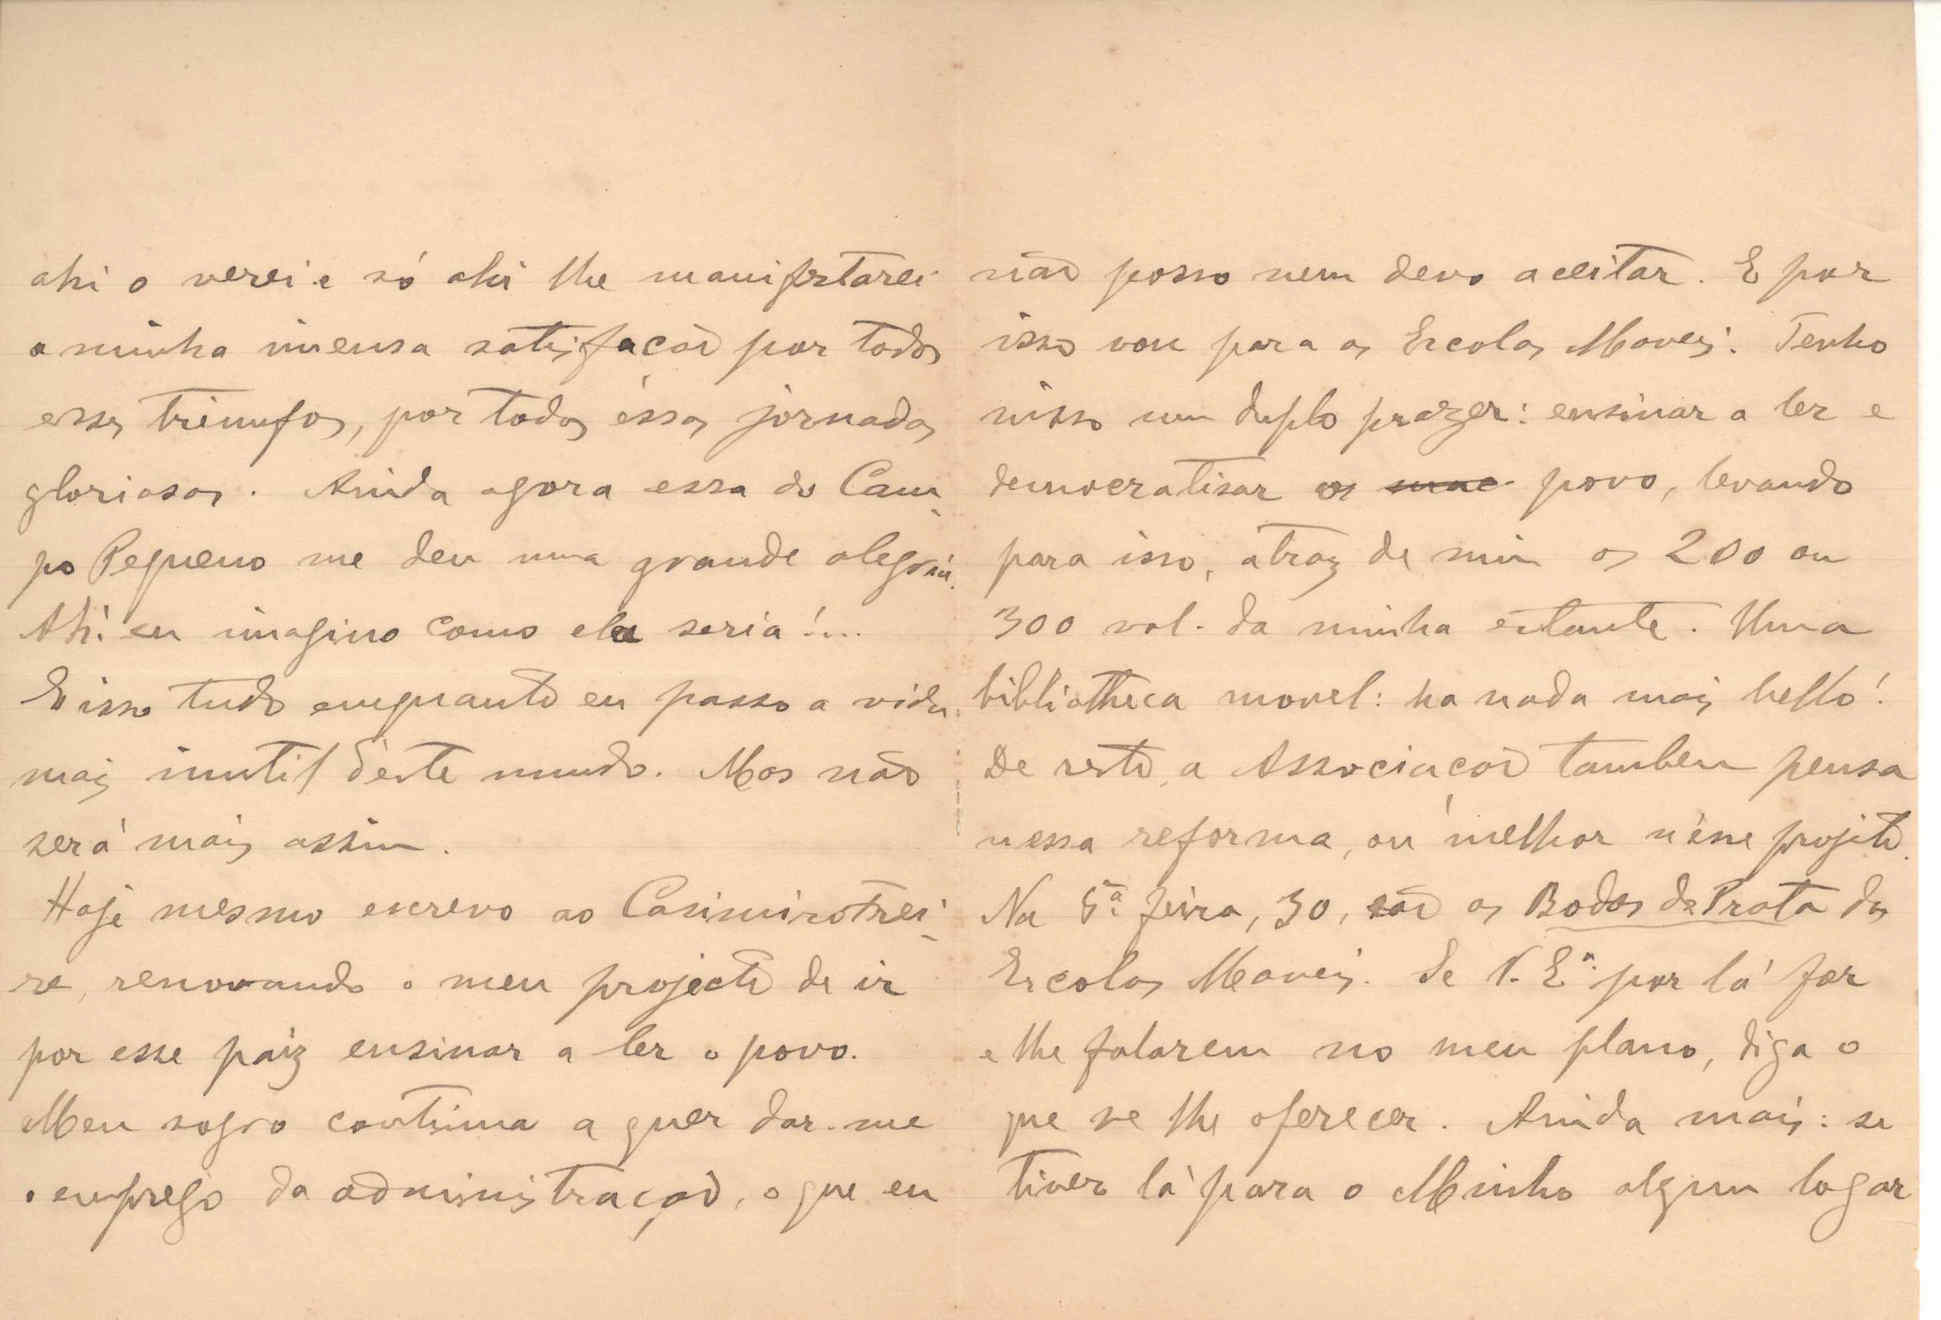 ahi o verei e só ahi lhe manifestarei
a minha imensa satisfação por todos
esses triumfos, por todas éssas jornadas
gloriosas. Ainda agora essa do Cam-
po Pequeno me deu uma grande alegria.
Ah! eu imagino como ela seria!...
E isso tudo emquanto eu passo a vida
mais inutil d'éste mundo. Mas não
será mais assim.
Hoje mesmo escrevo ao Casimiro Frei-
re, renovando o meu projecto de ir
por esse paiz ensinar a ler o povo.
Meu sogro continua a quer dar-me
o emprego da administração, o que eu
não posso nem devo aceitar. E por
isso vou para as Escolas Moveis. Tenho
nisso um duplo prazer: ensinar a ler e
democratisar os povo, levando
para isso, atraz de mim os 200 ou
300 vol. da minha estante. Uma
bibliotheca movel: ha nada mais bello!
De resto, a Associação tambem pensa
nessa reforma, ou melhor n'esse projeto.
Na 5ª feira, 30, são as Bodas de Prata das
Escolas Moveis. Se V. Eª. por lá for
e lhe falarem no meu plano, diga o
que se lhe oferecer. Ainda mais: se
tiver lá para o Minho algum logar